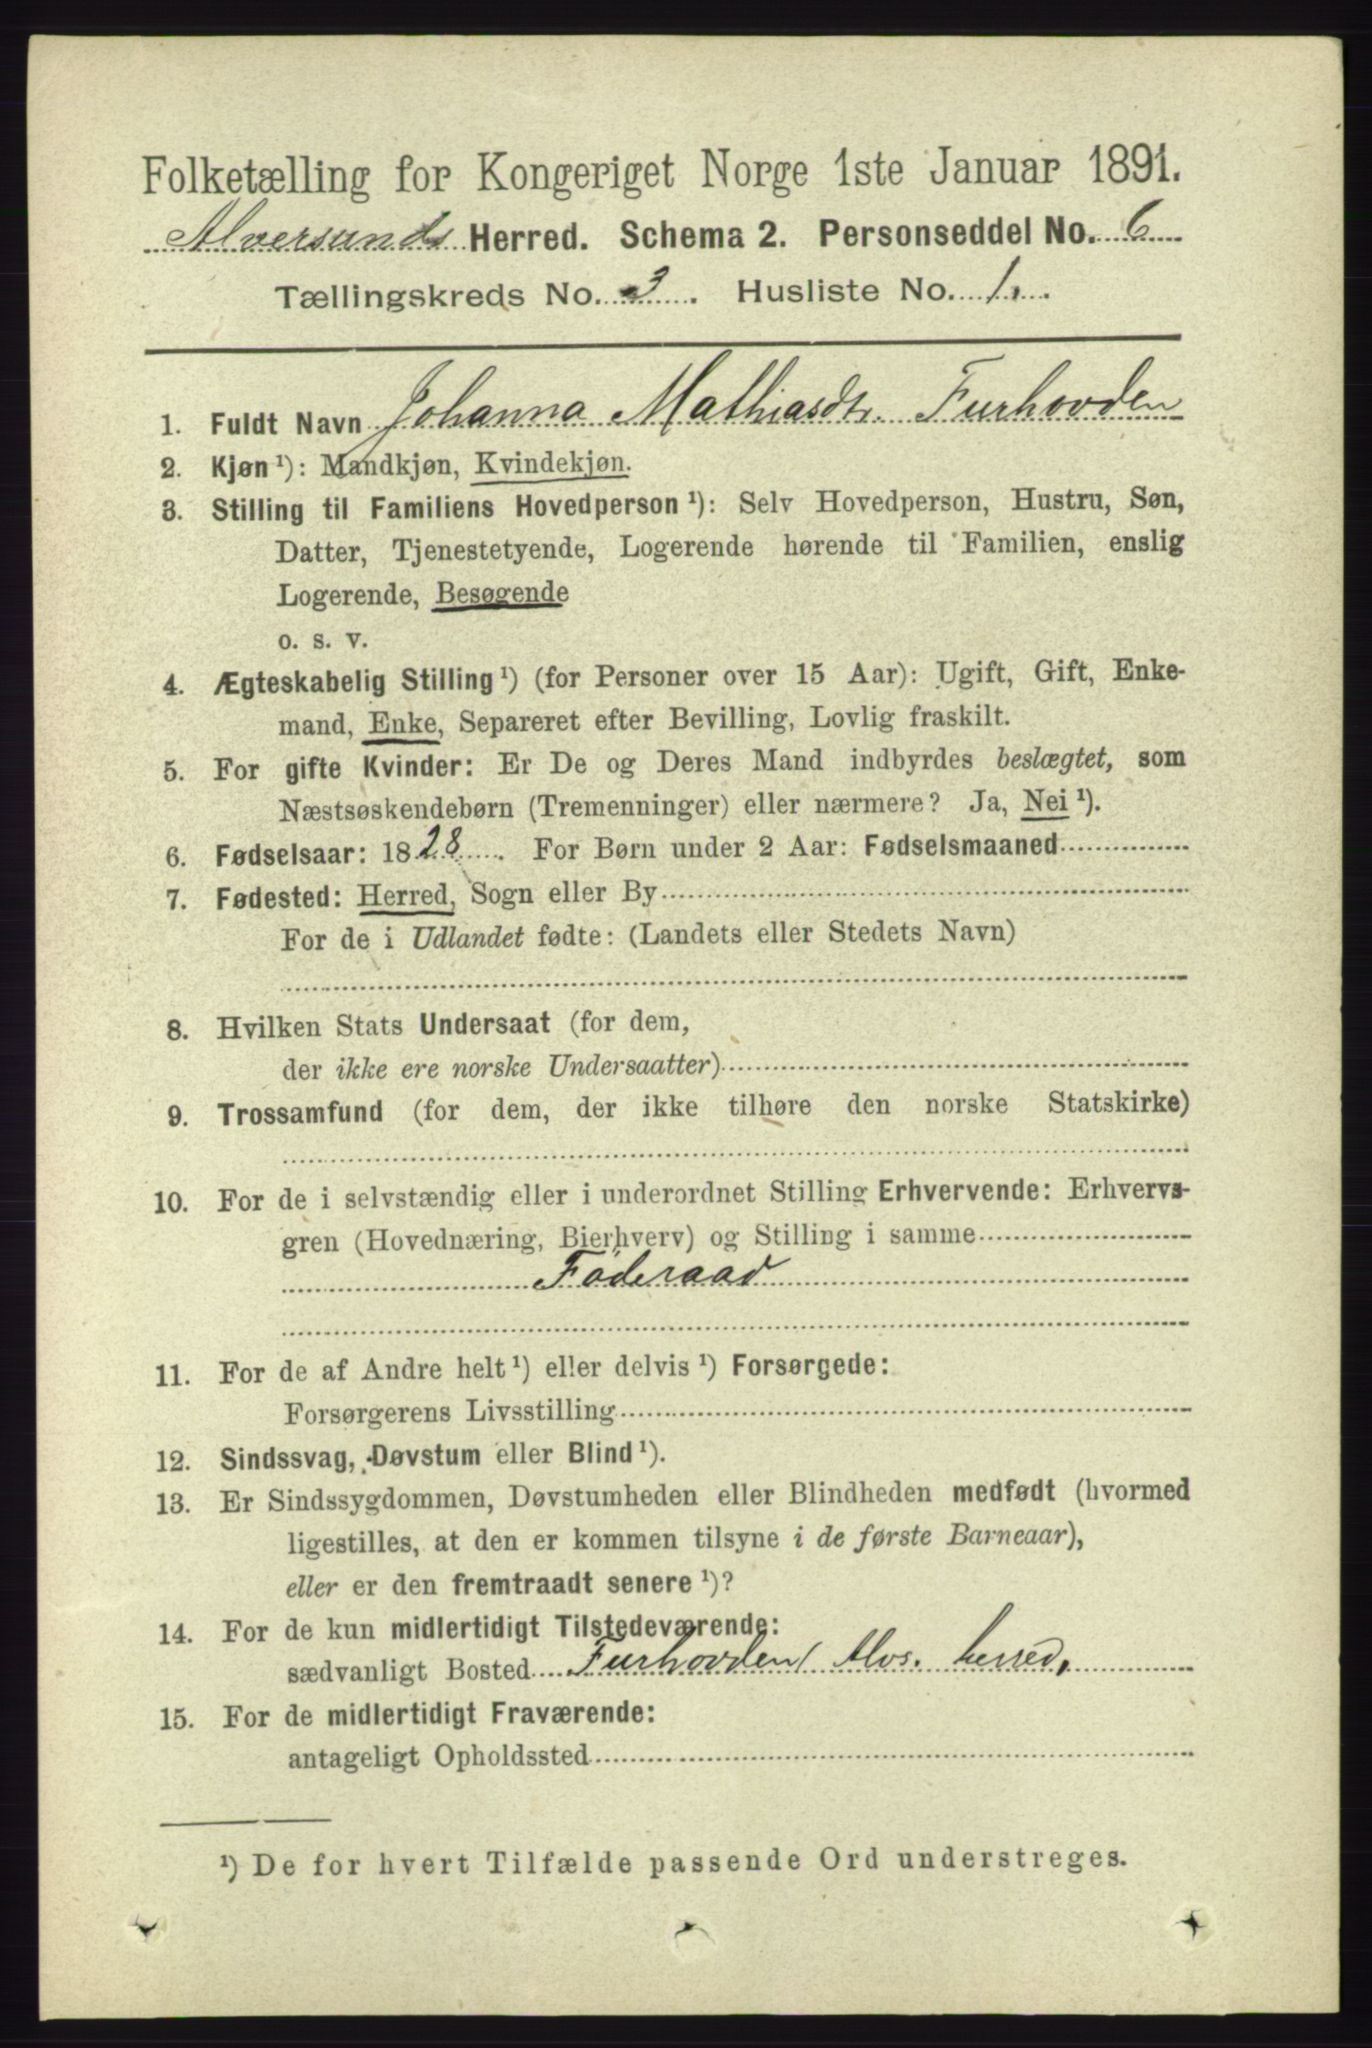 Folketælling for Kongeriget Norge 1ste Januar 1891.
Alversunds Herred. Schema 2. Personseddel No. 6
Tællingskreds No. 3. Husliste No. 1.
1. Fuldt Navn Johanna Mathiasdtr. Furhovden
2. Kjøn ¹): Mandkjøn, Kvindekjøn.
3. Stilling til Familiens Hovedperson ¹): Selv Hovedperson, Hustru, Søn,
Datter, Tjenestetyende, Logerende hørende til Familien, enslig
Logerende, Besøgende
o. s. v.
4. Ægteskabelig Stilling ¹) (for Personer over 15 Aar): Ugift, Gift, Enke-
mand, Enke, Separeret efter Bevilling, Lovlig fraskilt.
5. For gifte Kvinder: Er De og Deres Mand indbyrdes beslægtet, som
Næstsøskendebørn (Tremenninger) eller nærmere? Ja, Nei ¹).
6. Fødselsaar: 1828. For Børn under 2 Aar: Fødselsmaaned
7. Fødested: Herred, Sogn eller By
For de i Udlandet fødte: (Landets eller Stedets Navn)
8. Hvilken Stats Undersaat (for dem,
der ikke ere norske Undersaatter)
9. Trossamfund (for dem, der ikke tilhøre den norske Statskirke)
10. For de i selvstændig eller i underordnet Stilling Erhvervende: Erhvervs-
gren (Hovednæring, Bierhverv) og Stilling i samme
Føderaad
11. For de af Andre helt ¹) eller delvis ¹) Forsørgede:
Forsørgerens Livsstilling
12. Sindssvag, Døvstum eller Blind ¹).
13. Er Sindssygdommen, Døvstumheden eller Blindheden medfødt (hvormed
ligestilles, at den er kommen tilsyne i de første Barneaar),
eller er den fremtraadt senere ¹)?
14. For de kun midlertidigt Tilstedeværende:
sædvanligt Bosted Furhovden, Alvs. herred,
15. For de midlertidigt Fraværende:
antageligt Opholdssted
¹) De for hvert Tilfælde passende Ord understreges.